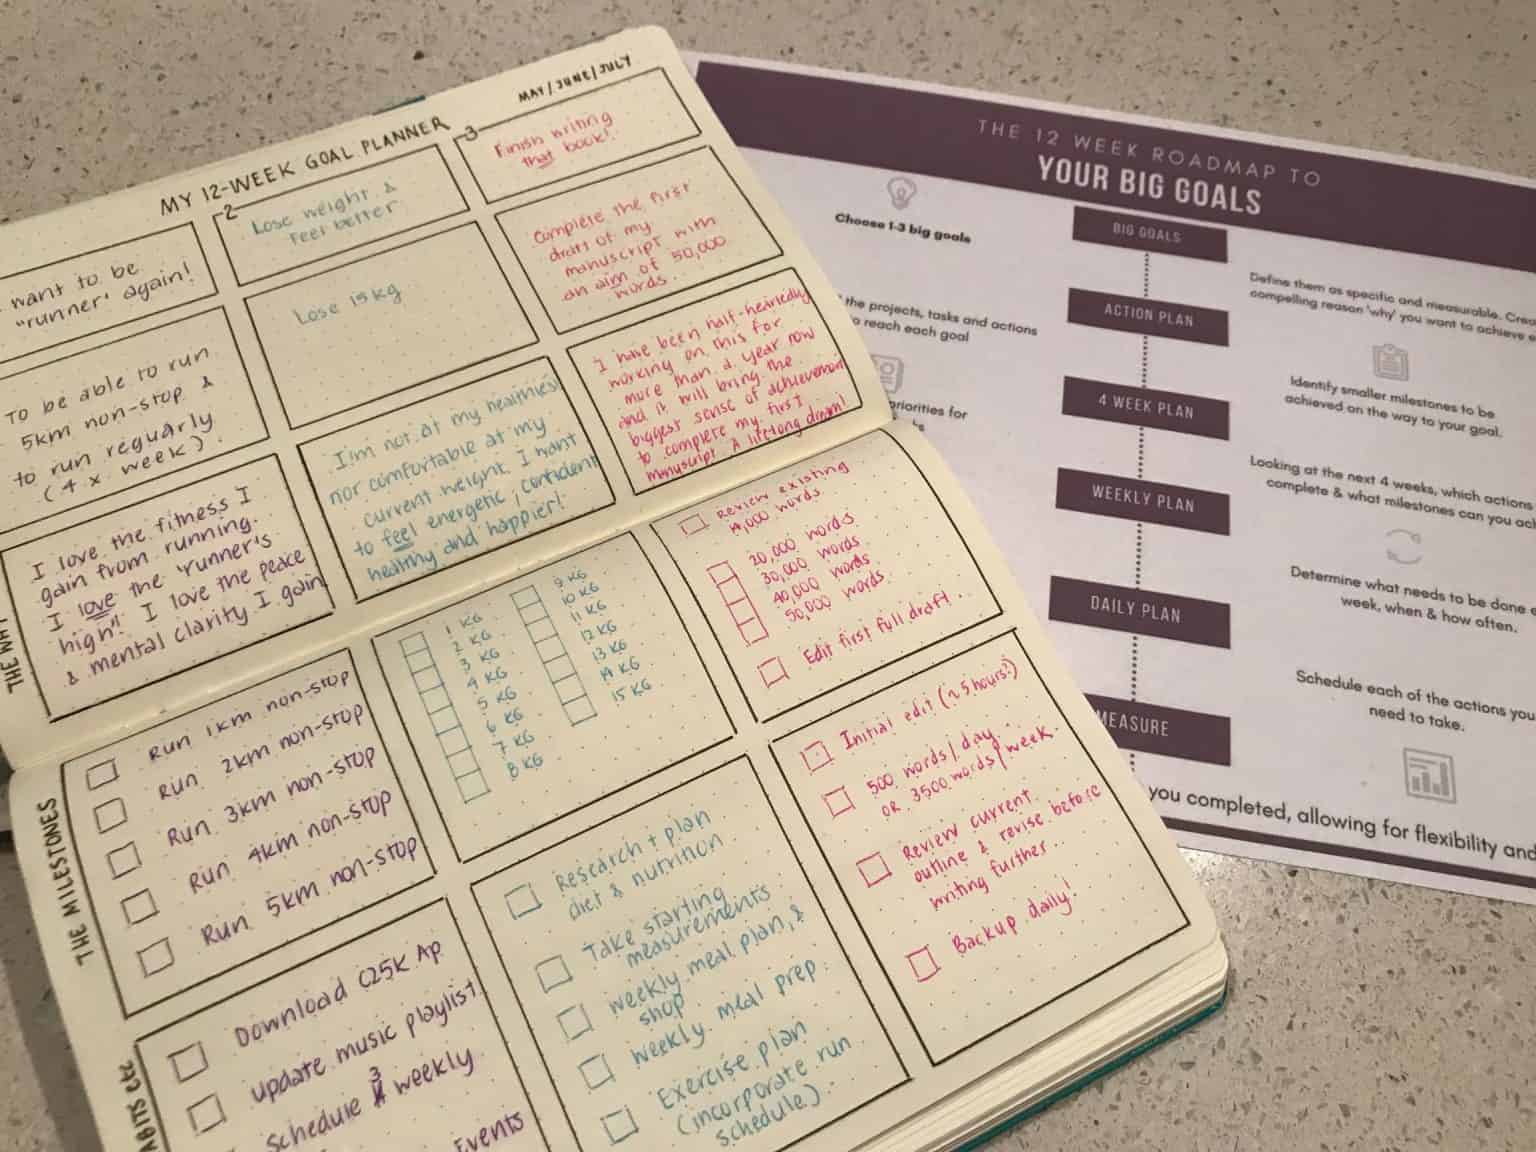 MY 12-WEEK GOAL PLANNER
MAY/JUNE/JULY
want to be
"runner" again!
To be able to run
5km non-stop &
to run reguarly
(4 x week).
THE WHY
I love the fitness I
gain from running.
I love the 'runner's
high"! I love the peace
& mental clarity I gain
2
Lose weight &
feel better
Lose 15kg
I'm not at my healthiest
nor comfortable at my
current weight. I want
to feel energetic, confident
healthy and happier!
3
Finish writing
that book!
Complete the first
draft of my
manuscript with
an aim of 50,000
words.
I have been half-heartedly
working on this for
more than a year now
and it will bring the
biggest sense of achievement
to complete my first
manuscript. A lifelong dream!
THE MILESTONES
Run 1km non-stop
Run 2km non-stop
Run 3km non-stop
Run 4km non-stop
Run 5km non-stop
1 KG
2 KG
3 KG
4 KG
5 KG
6 KG
7 KG
8 KG
9 KG
10 KG
11 KG
12 KG
13 KG
14 KG
15 KG
Review existing
words
20,000 words
30,000 words
40,000 words
50,000 words
Edit first full draft.
ABITS etc
Download C25K Ap
update music playlist
Schedule 3 weekly
Events
Research + plan
diet & nutrition
Take starting
measurements
weekly meal plan, &
shop
weekly meal prep
Exercise plan
(incorporate run
schedule).
Initial edit (~5 hours?)
500 words/day.
OR 3500 words/week.
Review current
outline & revise before
writing further..
Backup daily!
THE 12 WEEK ROADMAP TO
YOUR BIG GOALS
Choose 1-3 big goals
BIG GOALS
Define them as specific and measurable. Crea
compelling reason 'why' you want to achieve
the projects, tasks and actions
to reach each goal
ACTION PLAN
Identify smaller milestones to be
achieved on the way to your goal.
priorities for
4 WEEK PLAN
Looking at the next 4 weeks, which actions
complete & what milestones can you ach
WEEKLY PLAN
Determine what needs to be done
week, when & how often.
DAILY PLAN
Schedule each of the actions you
need to take.
MEASURE
you completed, allowing for flexibility and